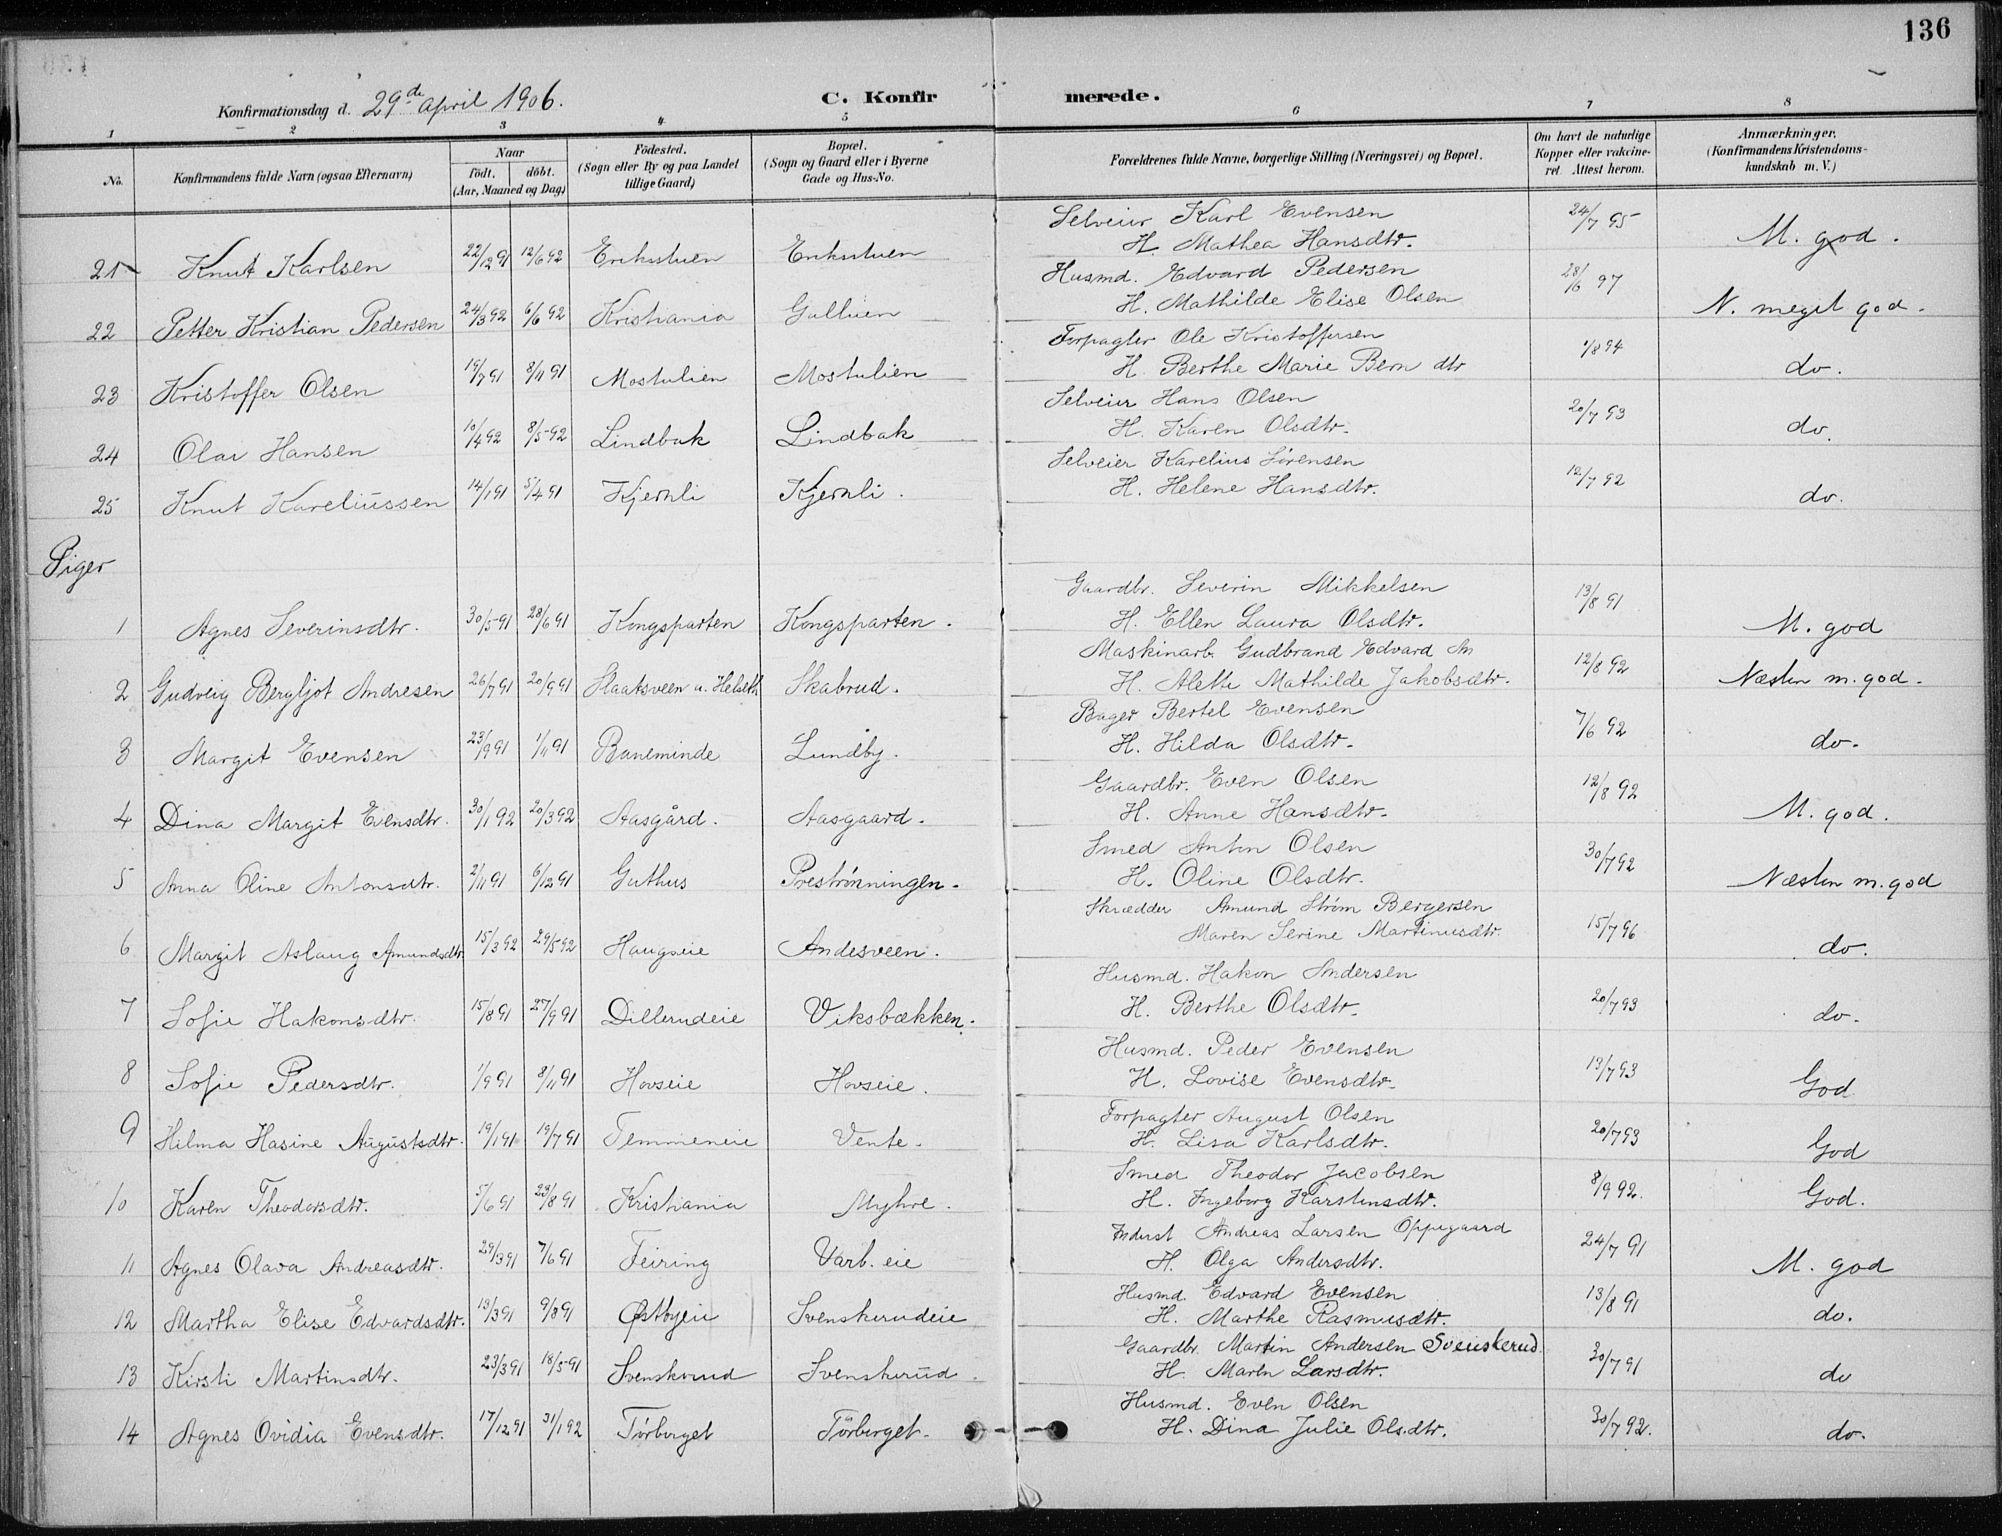 136
Konfirmationsdag d. 29de April 1906. C. Konfirmerede.
1 2 3 4 5 6 7 8
No. Konfirmandens fulde Navn (ogsaa Efternavn) Naar födt. döbt. (Aar, Maaned og Dag) Födested. (Sogn eller By og paa Landet tillige Gaard) Bopæl. (Sogn og Gaard eller i Byerne Gade og Hus-No. Forældrenes fulde Navne, borgerlige Stilling (Næringsvei) og Bopæl. Om havt de naturlige Kopper eller vakcineret. Attest herom. Anmærkninger. (Konfirmandens Kristendomskundskab m. V.)
21 Knut Karlsen 22/12 91 12/6 92 Eriksstuen Eriksstuen Selveier Karl Evensen 24/7 95 M. god.
H. Mathea Hansdtr.
22 Petter Kristian Pedersen 24/3 92 6/6 92 Kristiania Gulluen Husmd. Edvard Pedersen 28/6 97 N. meget god.
H. Mathilde Elise Olsen
23 Kristoffer Olsen 19/7 91 8/11 91 Mostulien Mostulien Forpagter Ole Kristoffersen 1/8 94 do.
H. Berthe Marie Bern dtr
24 Olai Hansen 10/4 92 8/5 92 Lindbak Lindbak Selveier Hans Olsen 20/7 93 do.
H. Karen Olsdtr.
25 Knut Kareliussen 14/1 91 5/4 91 Kjernli Kjernli. Selveier Karelius Sörensen 12/7 92 do.
H. Helene Hansdtr.
Piger
1 Agnes Severinsdtr. 30/5 91 28/6 91 Kongsparten Kongsparten. Gaardbr. Severin Mikkelsen 13/8 91 M. god
H. Ellen Laura Olsdtr.
2 Gudveig Bergljot Andresen 26/7 91 20/9 91 Slaatsveen u. Helseth Skabrud. Maskinarb. Gudbrand Edvard An 12/8 92 Næsten m. god.
H. Alette Mathilde Jakobsdtr.
3 Margit Evensen 23/9 91 1/11 91 Baneminde Lundby. Bager Bertel Evensen 7/6 92 do.
H. Hilda Olsdtr.
4 Dina Margit Evensdtr. 30/1 92 20/3 92 Aasgård. Aasgaard. Gaardbr. Even Olsen 12/8 92 M. god.
H. Anne Hansdtr.
5 Anna Oline Antonsdtr. 2/11 91 6/12 91 Guthus Preströnningen. Smed Anton Olsen 30/7 92 Næsten m. god
H. Oline Olsdtr.
6 Margit Aslaug Amundsdtr. 15/3 92 29/5 92 Haugseie Andesveen. Skrædder Amund Ström Bergersen 15/7 96 do.
Maren Serine Martinusdtr.
7 Sofie Hakonsdtr. 15/8 91 27/9 91 Dillerudeie Viksbækken. Husmd. Hakon Andersen 20/7 93 do.
H. Berthe Olsdtr.
8 Sofie Pedersdtr. 1/9 91 8/11 91 Hovseie Hovseie. Husmd. Peder Evensen 13/7 93 God
H. Lovise Evensdtr.
9 Hilma Hasine Augustsdtr. 19/1 91 19/7 91 Temmeneie Vente. Forpagter August Olsen 20/7 93 God
H. Lisa Karlsdtr.
10 Karen Theodorsdtr. 5/6 91 23/8 91 Kristiania Myhre. Smed Theodor Jacobsen 8/9 92. God.
H. Ingeborg Karstensdtr.
11 Agnes Olava Andreasdtr. 29/3 91 7/6 91 Feiring Varb. eie Inderst Andreas Larsen Oppegaard 24/7 91 M. god
H. Olga Andersdtr.
12 Martha Elise Edvardsdtr. 13/3 91 9/8 91 Østbyeie Svenskerudeie Husmd. Edvard Evensen 13/8 91 do.
H. Marthe Rasmusdtr.
13 Kirsti Martinsdtr. 23/3 91 18/5 91 Svenskerud Svenskerud. Gaardbr. Martin Andersen Svenskerud 30/7 91 do
H. Maren Larsdtr.
14 Agnes Ovidia Evensdtr. 17/12 91 31/1 92 Törberget Törberget. Husmd. Even Olsen 30/7 92. do.
H. Dina Julie Olsdtr.